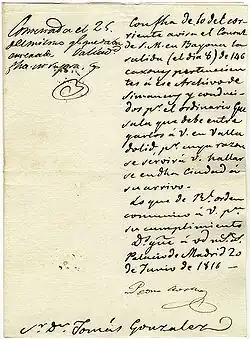 Contestada el 25
del mismo
Con fha de 10 del cor-
riente avisa el Consul
de S. M. en Bayona la
salida (el dia 8) de 146
caxones pertenecien-
tes á ese Archivo de
Simancas y conduci-
dos pr. el Ordinario
que debe entre-
garlos á V. en Valla-
dolid, pr. cuya razon
se servirá V. hallar
se en dha Ciudad á
su arrivo.
Lo que de Rl. orden
comunico á V. pa.
su cumplimiento
Ds. gue. á V. ms. as.
Palacio de Madrid 20
de Junio de 1816
Sr. Dn. Tomás Gonzalez